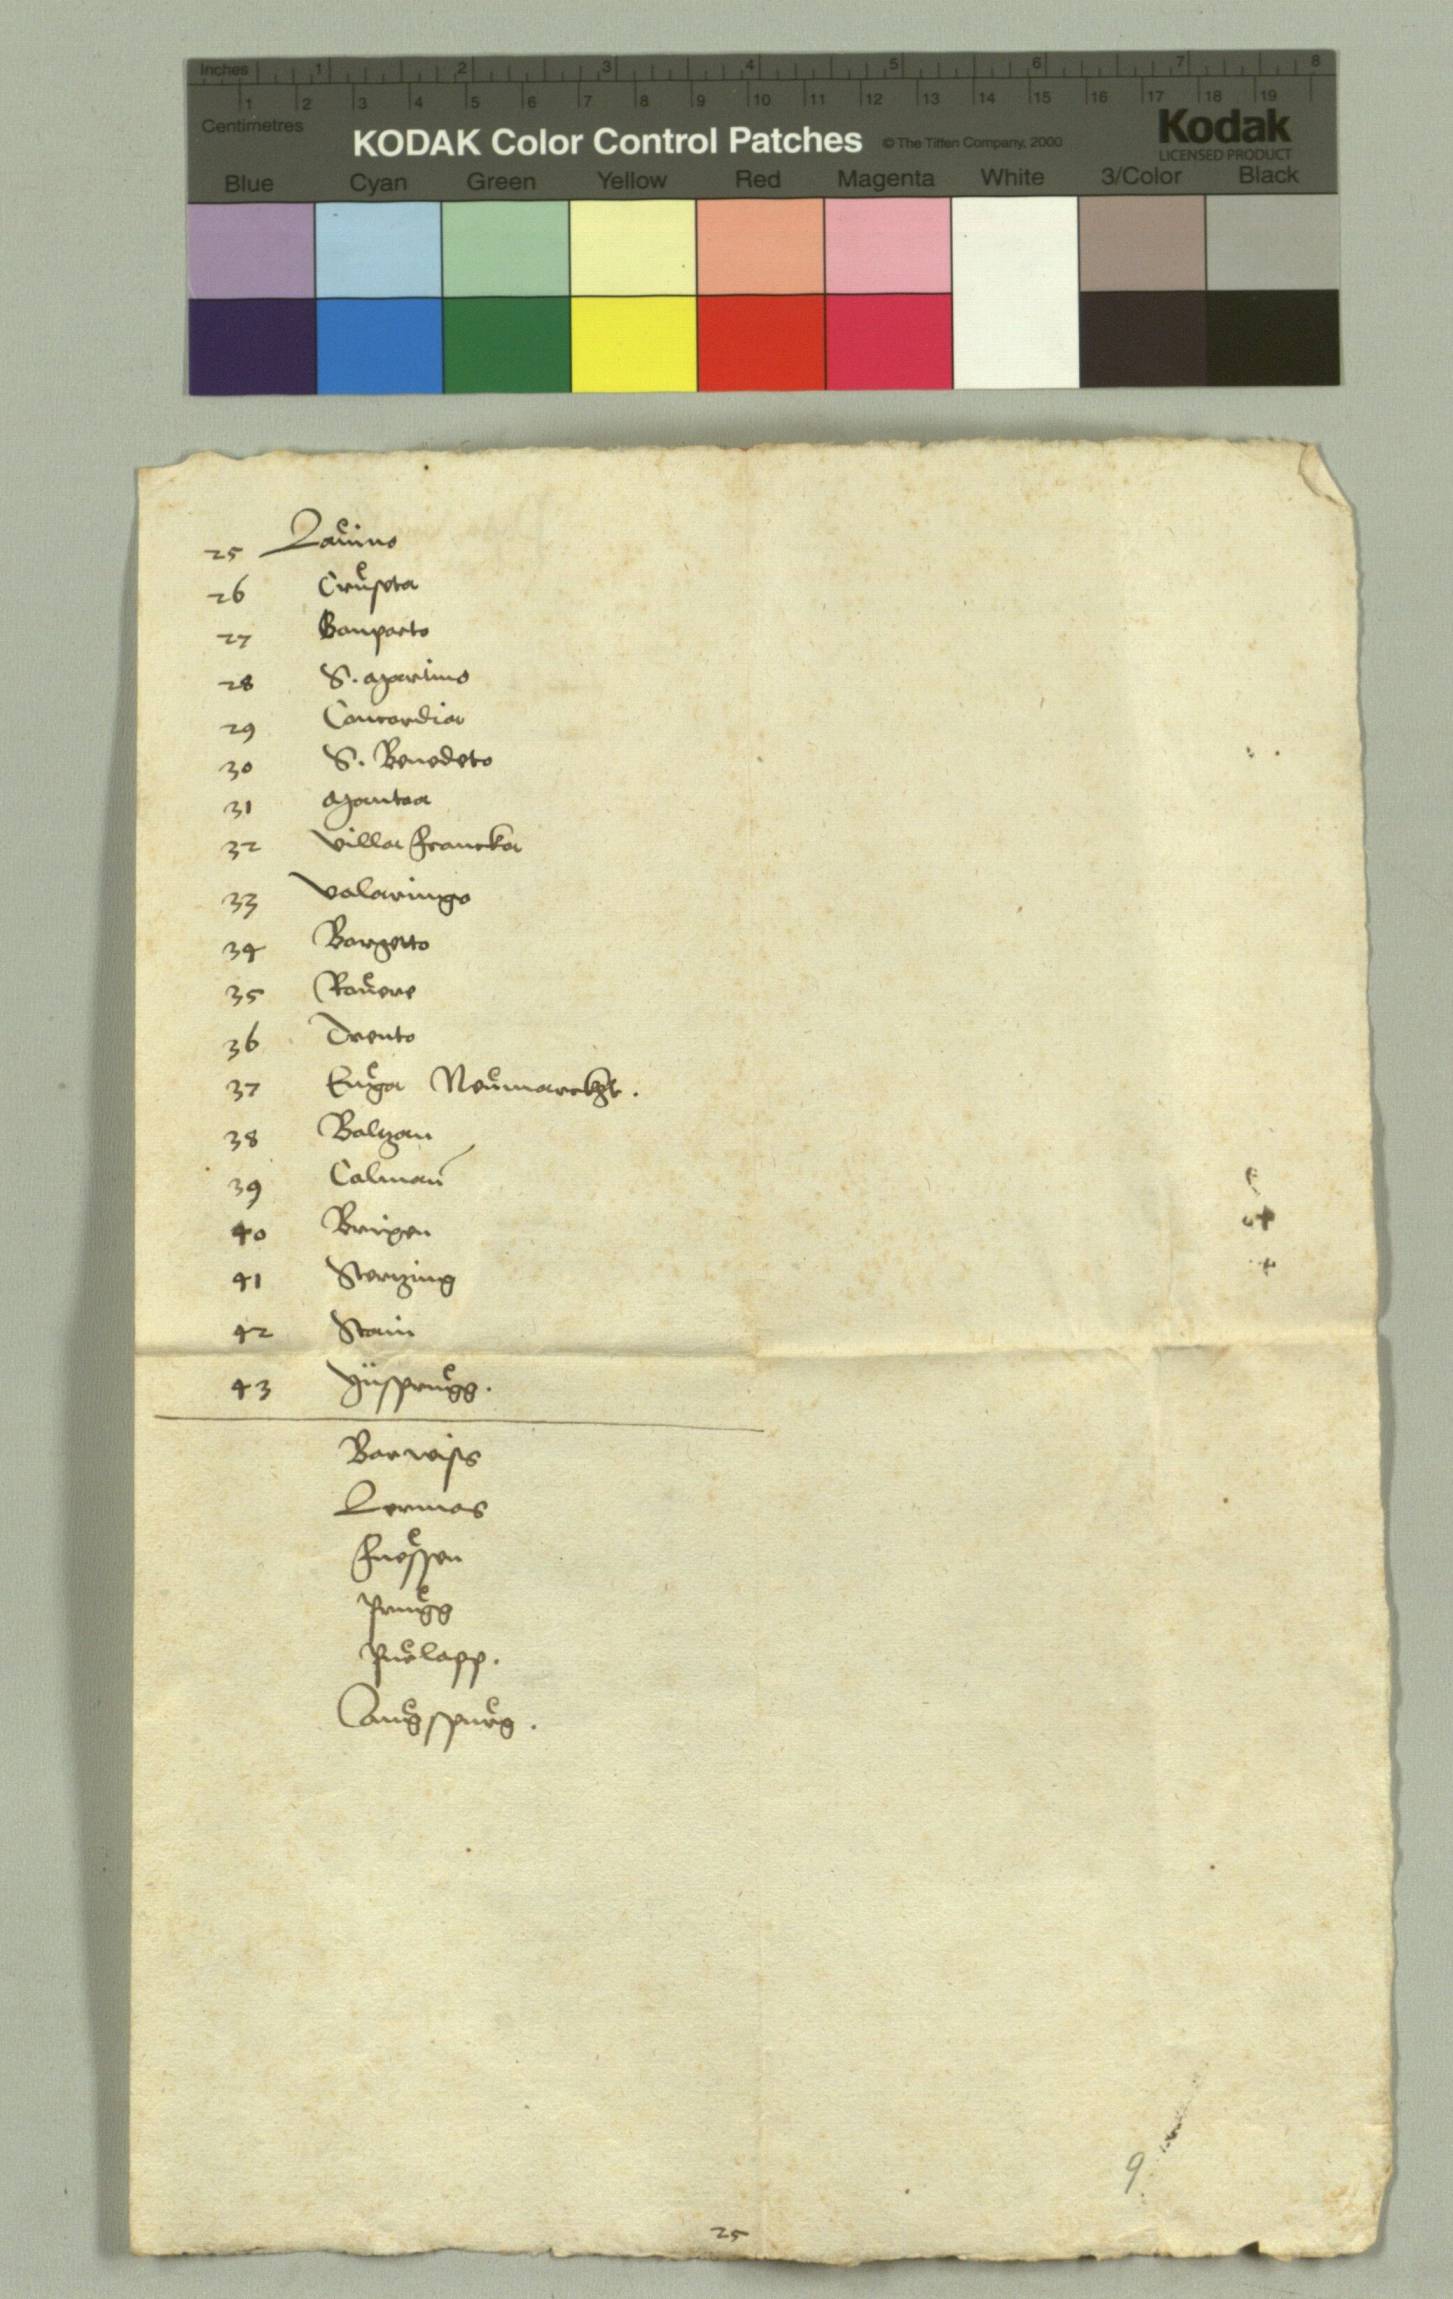 Inches 1 2 3 4 5 6 7 8
1 2 3 4 5 6 7 8 9 10 11 12 13 14 15 16 17 18 19
Centimetres
KODAK Color Control Patches © The Tiffen Company, 2000 Kodak
LICENSED PRODUCT
Blue Cyan Green Yellow Red Magenta White 3/Color Black
25 Lauino
26 Cruseta
27 Bonporto
28 S. Martino
29 Concordia
30 S. Benedeto
31 Mantoa
32 villa francka
33 Valaringo
34 Borgetto
35 Rouere
36 Trento
37 Enga Neumarckht.
38 Bolzan
39 Colman
40 Brixen
41 Stertzing
42 Stain
43 Ynsprugg.
Barwiss
Lermos
fuessen
Prugg
Puelapp.
Augspurg.
9
25